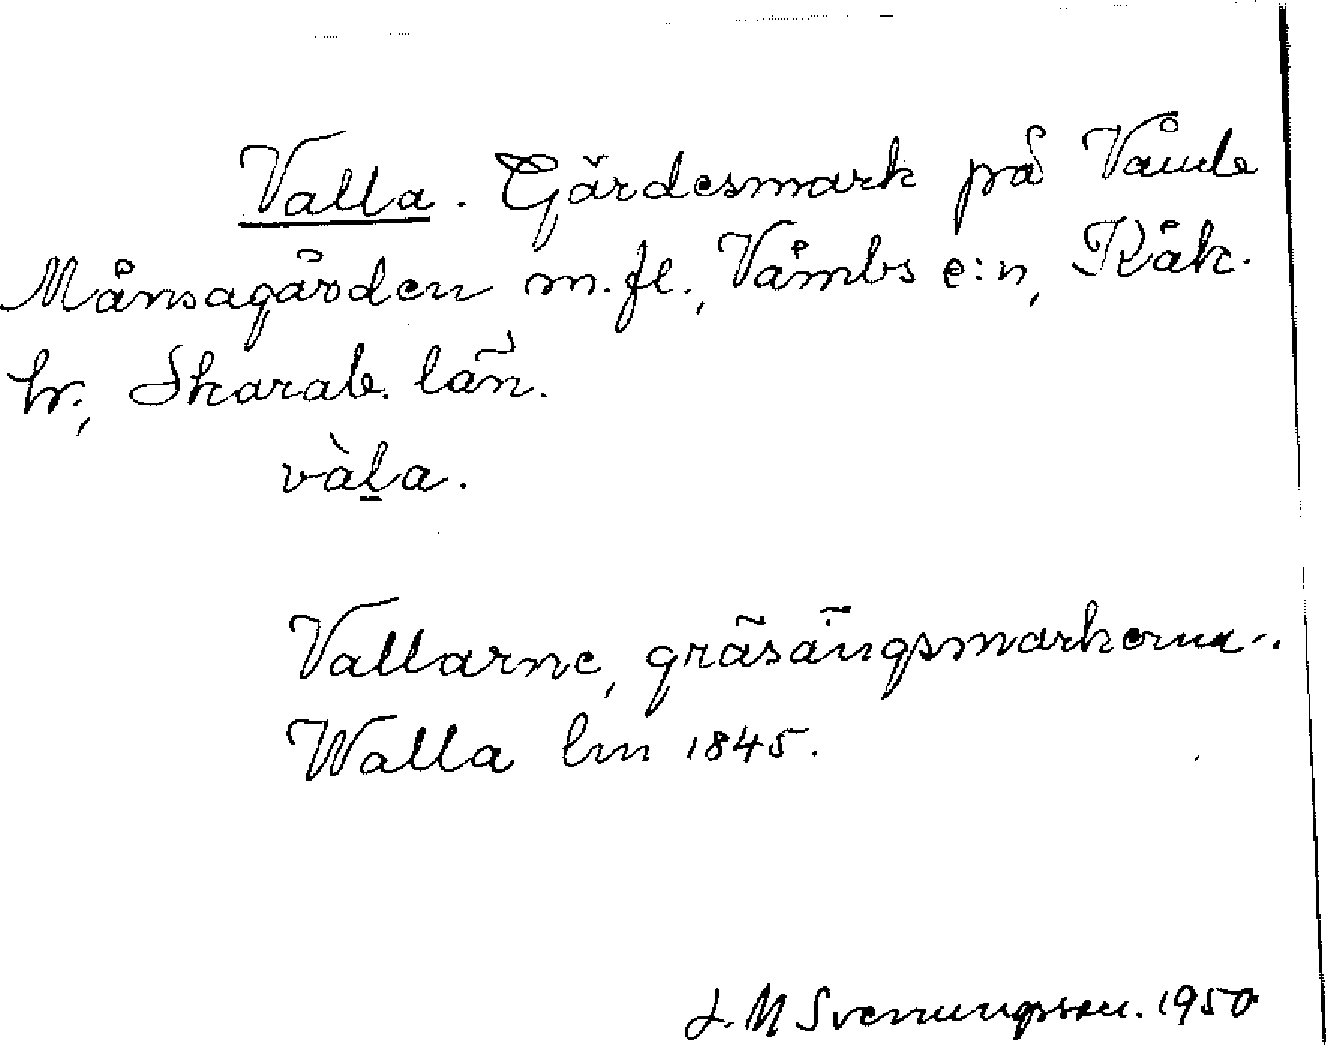 Valla. Gärdesmark på Våmb
Månsagården m.fl., Våmbs s:n, Kåk.
hr., Skarab. län.
vàḻa.
Vallarne, gräsängsmarkerna.
Walla lm 1845.
J. M Svenungsson. 1950